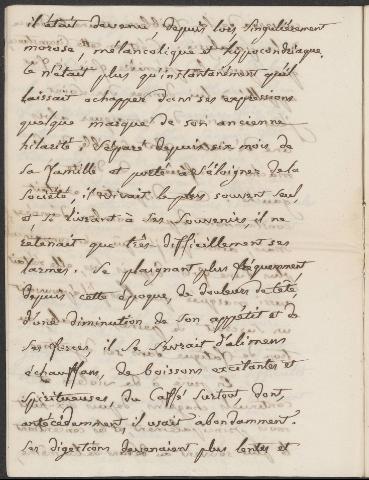 il était devenu, depuis lors singulièrement
morose, mélancolique et hypocondriaque.
Ce n'était plus qu'instantanément qu'il
laissait échapper dans ses expressions
quelque marque de son ancienne
hilarité; Séparé depuis six mois de
sa famille et porté à s'éloigner de la
société, il vivait le plus souvent seul,
et, se livrant à ses souvenirs, il ne
retenait que très difficillement ses
larmes. Se plaignant plus fréquemment,
depuis cette époque, de douleurs de tête,
d'une diminution de son appétit et de
ses forces, il se sevrait d'alimens
échauffans, de boissons excitantes et
spiritueuses, du Caffé surtout, dont,
antécédemment il usait abondamment.
Ses digestions devenaient plus lentes et